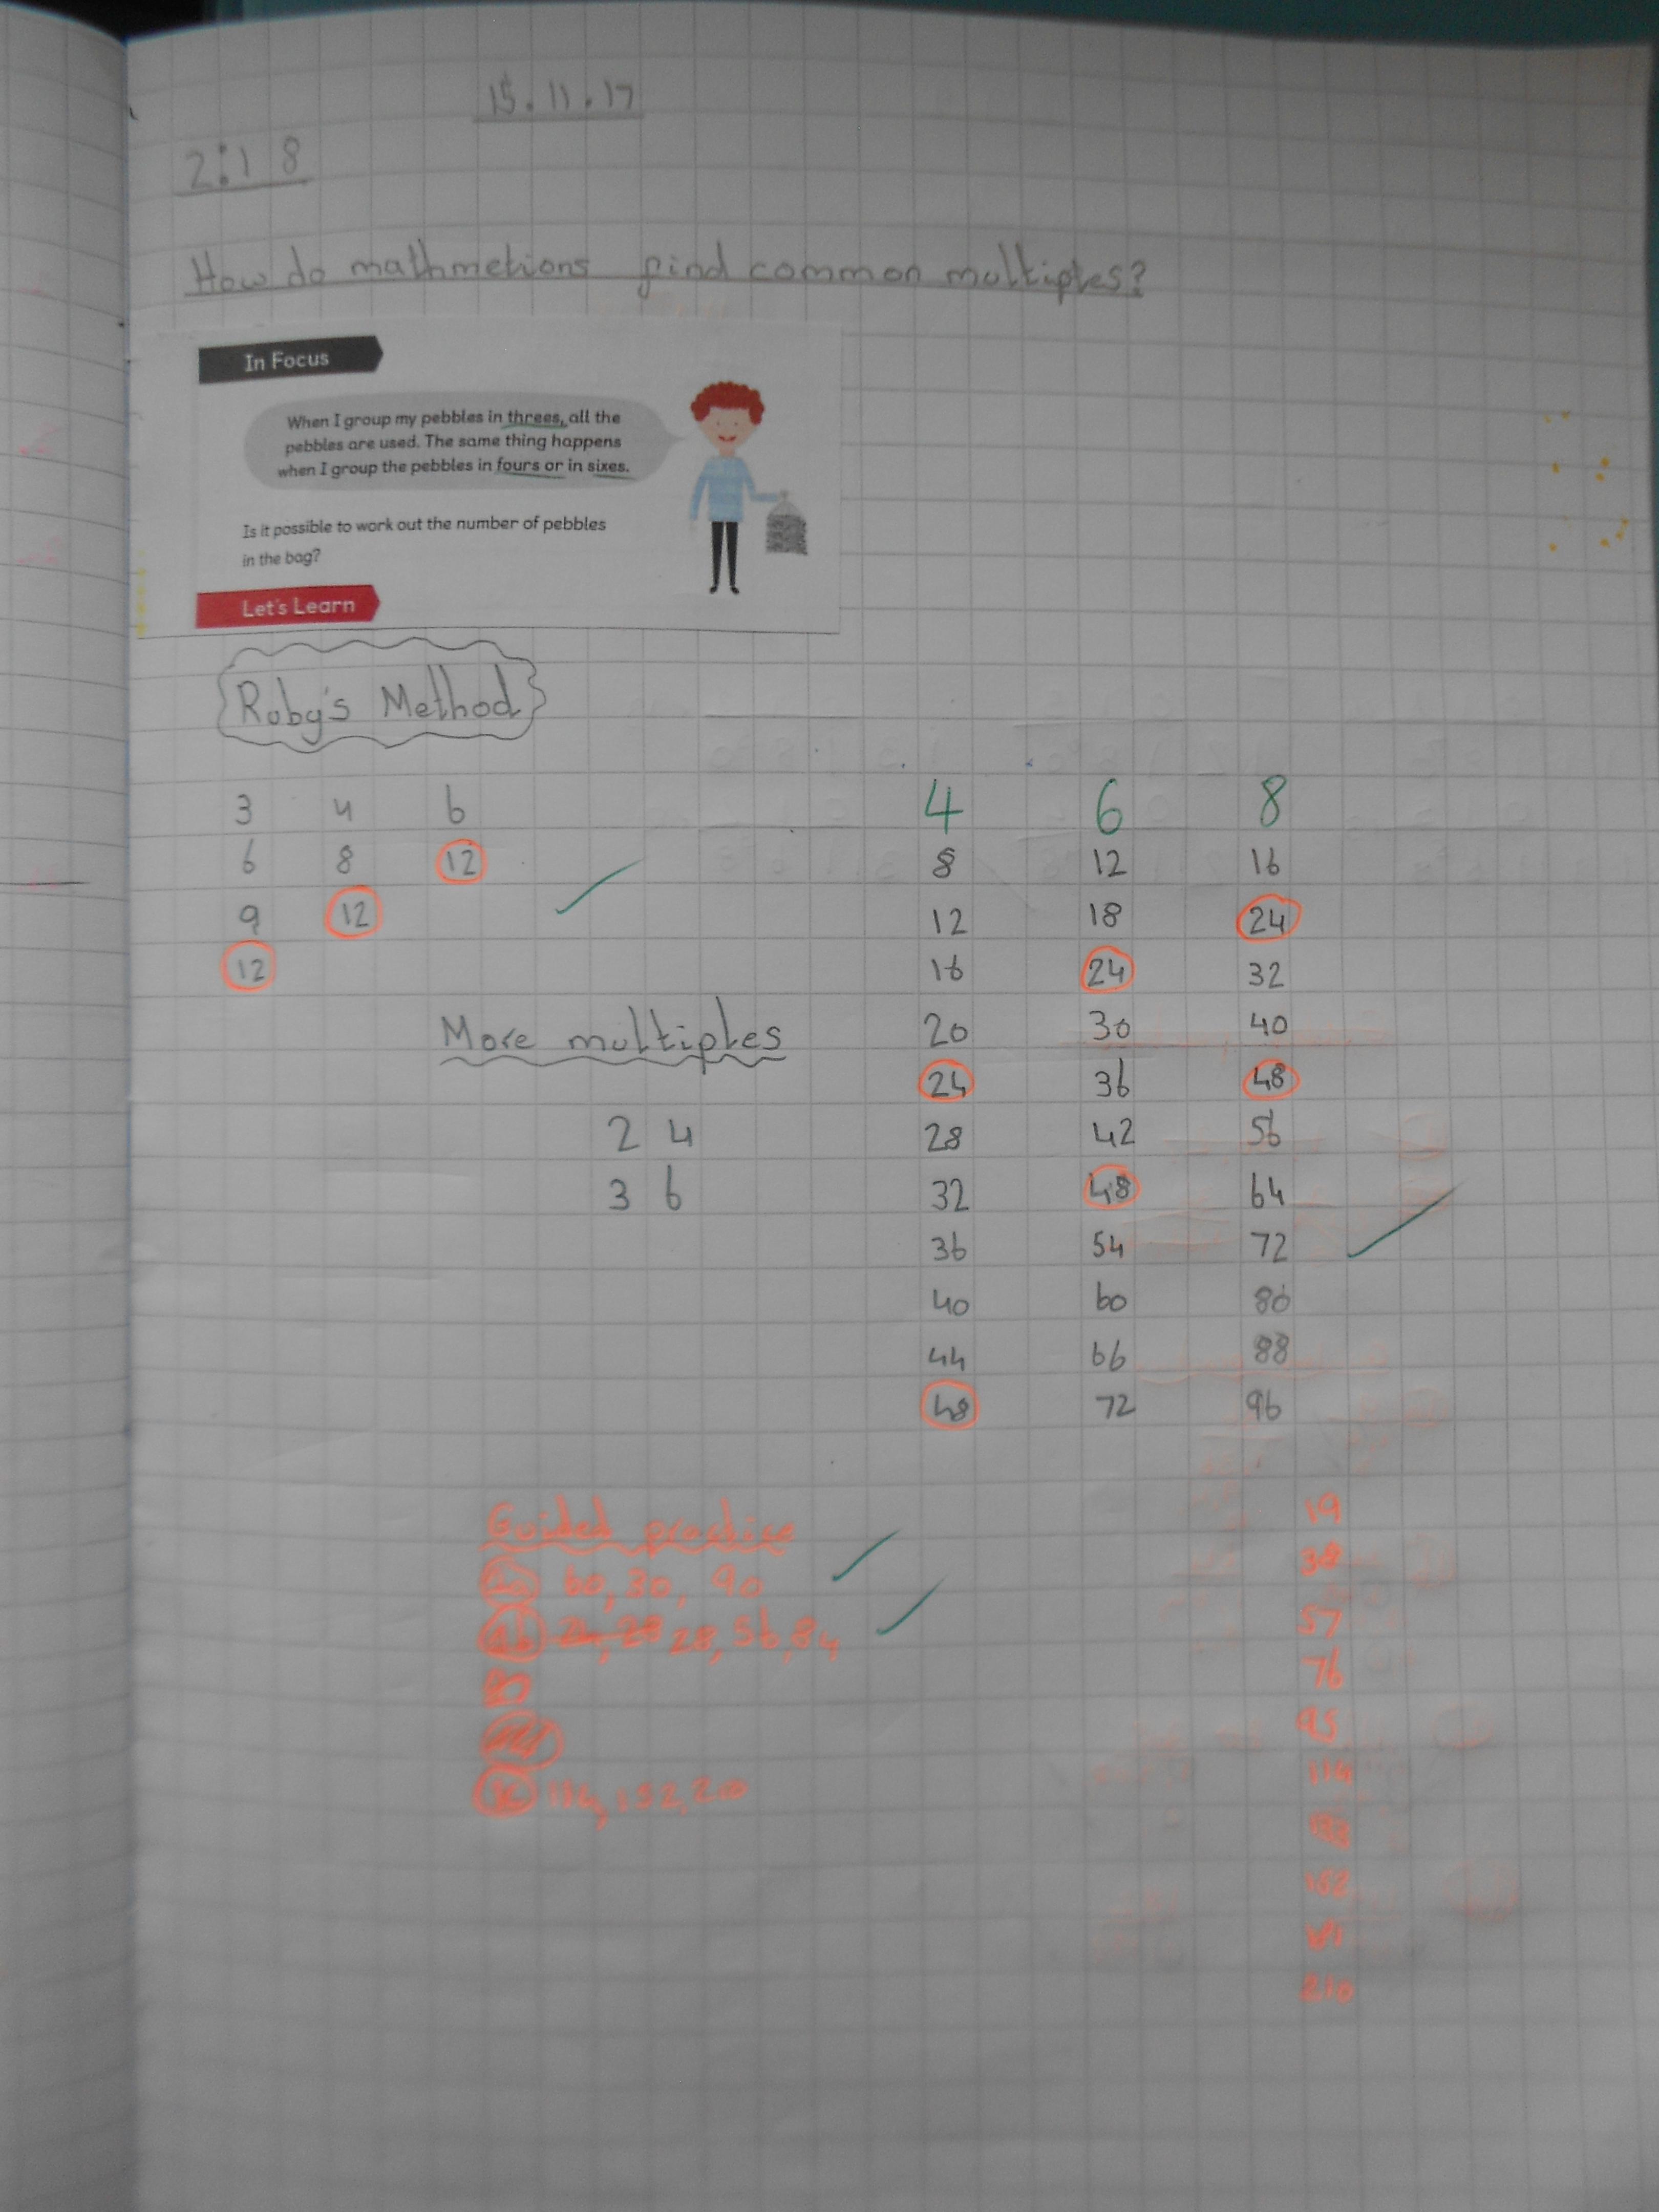 15.11.17
2:18
How do mathmetions find common multiples?
In Focus
When I group my pebbles in threes, all the
pebbles are used. The same thing happens
when I group the pebbles in fours or in sixes.
Is it possible to work out the number of pebbles
in the bag?
Let's Learn
Ruby's Method
3 4 6
6 8 12
9 12
12
More multiples
2 4
3 6
4 6 8
8 12 16
12 18 24
16 24 32
20 30 40
24 36 48
28 42 56
32 48 64
36 54 72
40 60 80
44 66 88
48 72 96
Guided practice
60, 30, 90
28, 56, 84
152, 20
19
38
57
76
95
114
152
210